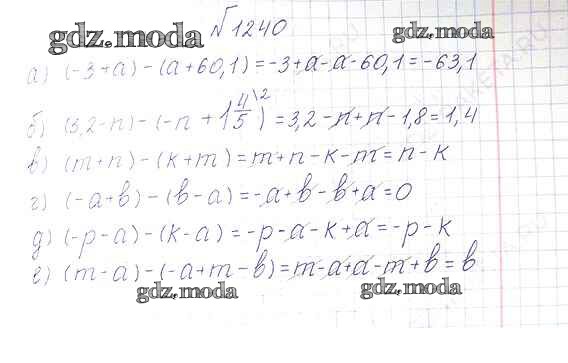 gdz.moda №1240 gdz.moda
а) (-3+а)-(а+60,1)=-3+а-а-60,1=-63,1
б) (3,2-n)-(-n+1 4/5\2)=3,2-n+n-1,8=1,4
в) (m+n)-(k+m)=m+n-k-m=n-k
г) (-а+в)-(в-а)=-а+в-в+а=0
д) (-p-а)-(k-а)=-p-а-k+а=-p-k
е) (m-а)-(-а+m-в)=m-а+а-m+в=в
gdz.moda gdz.moda